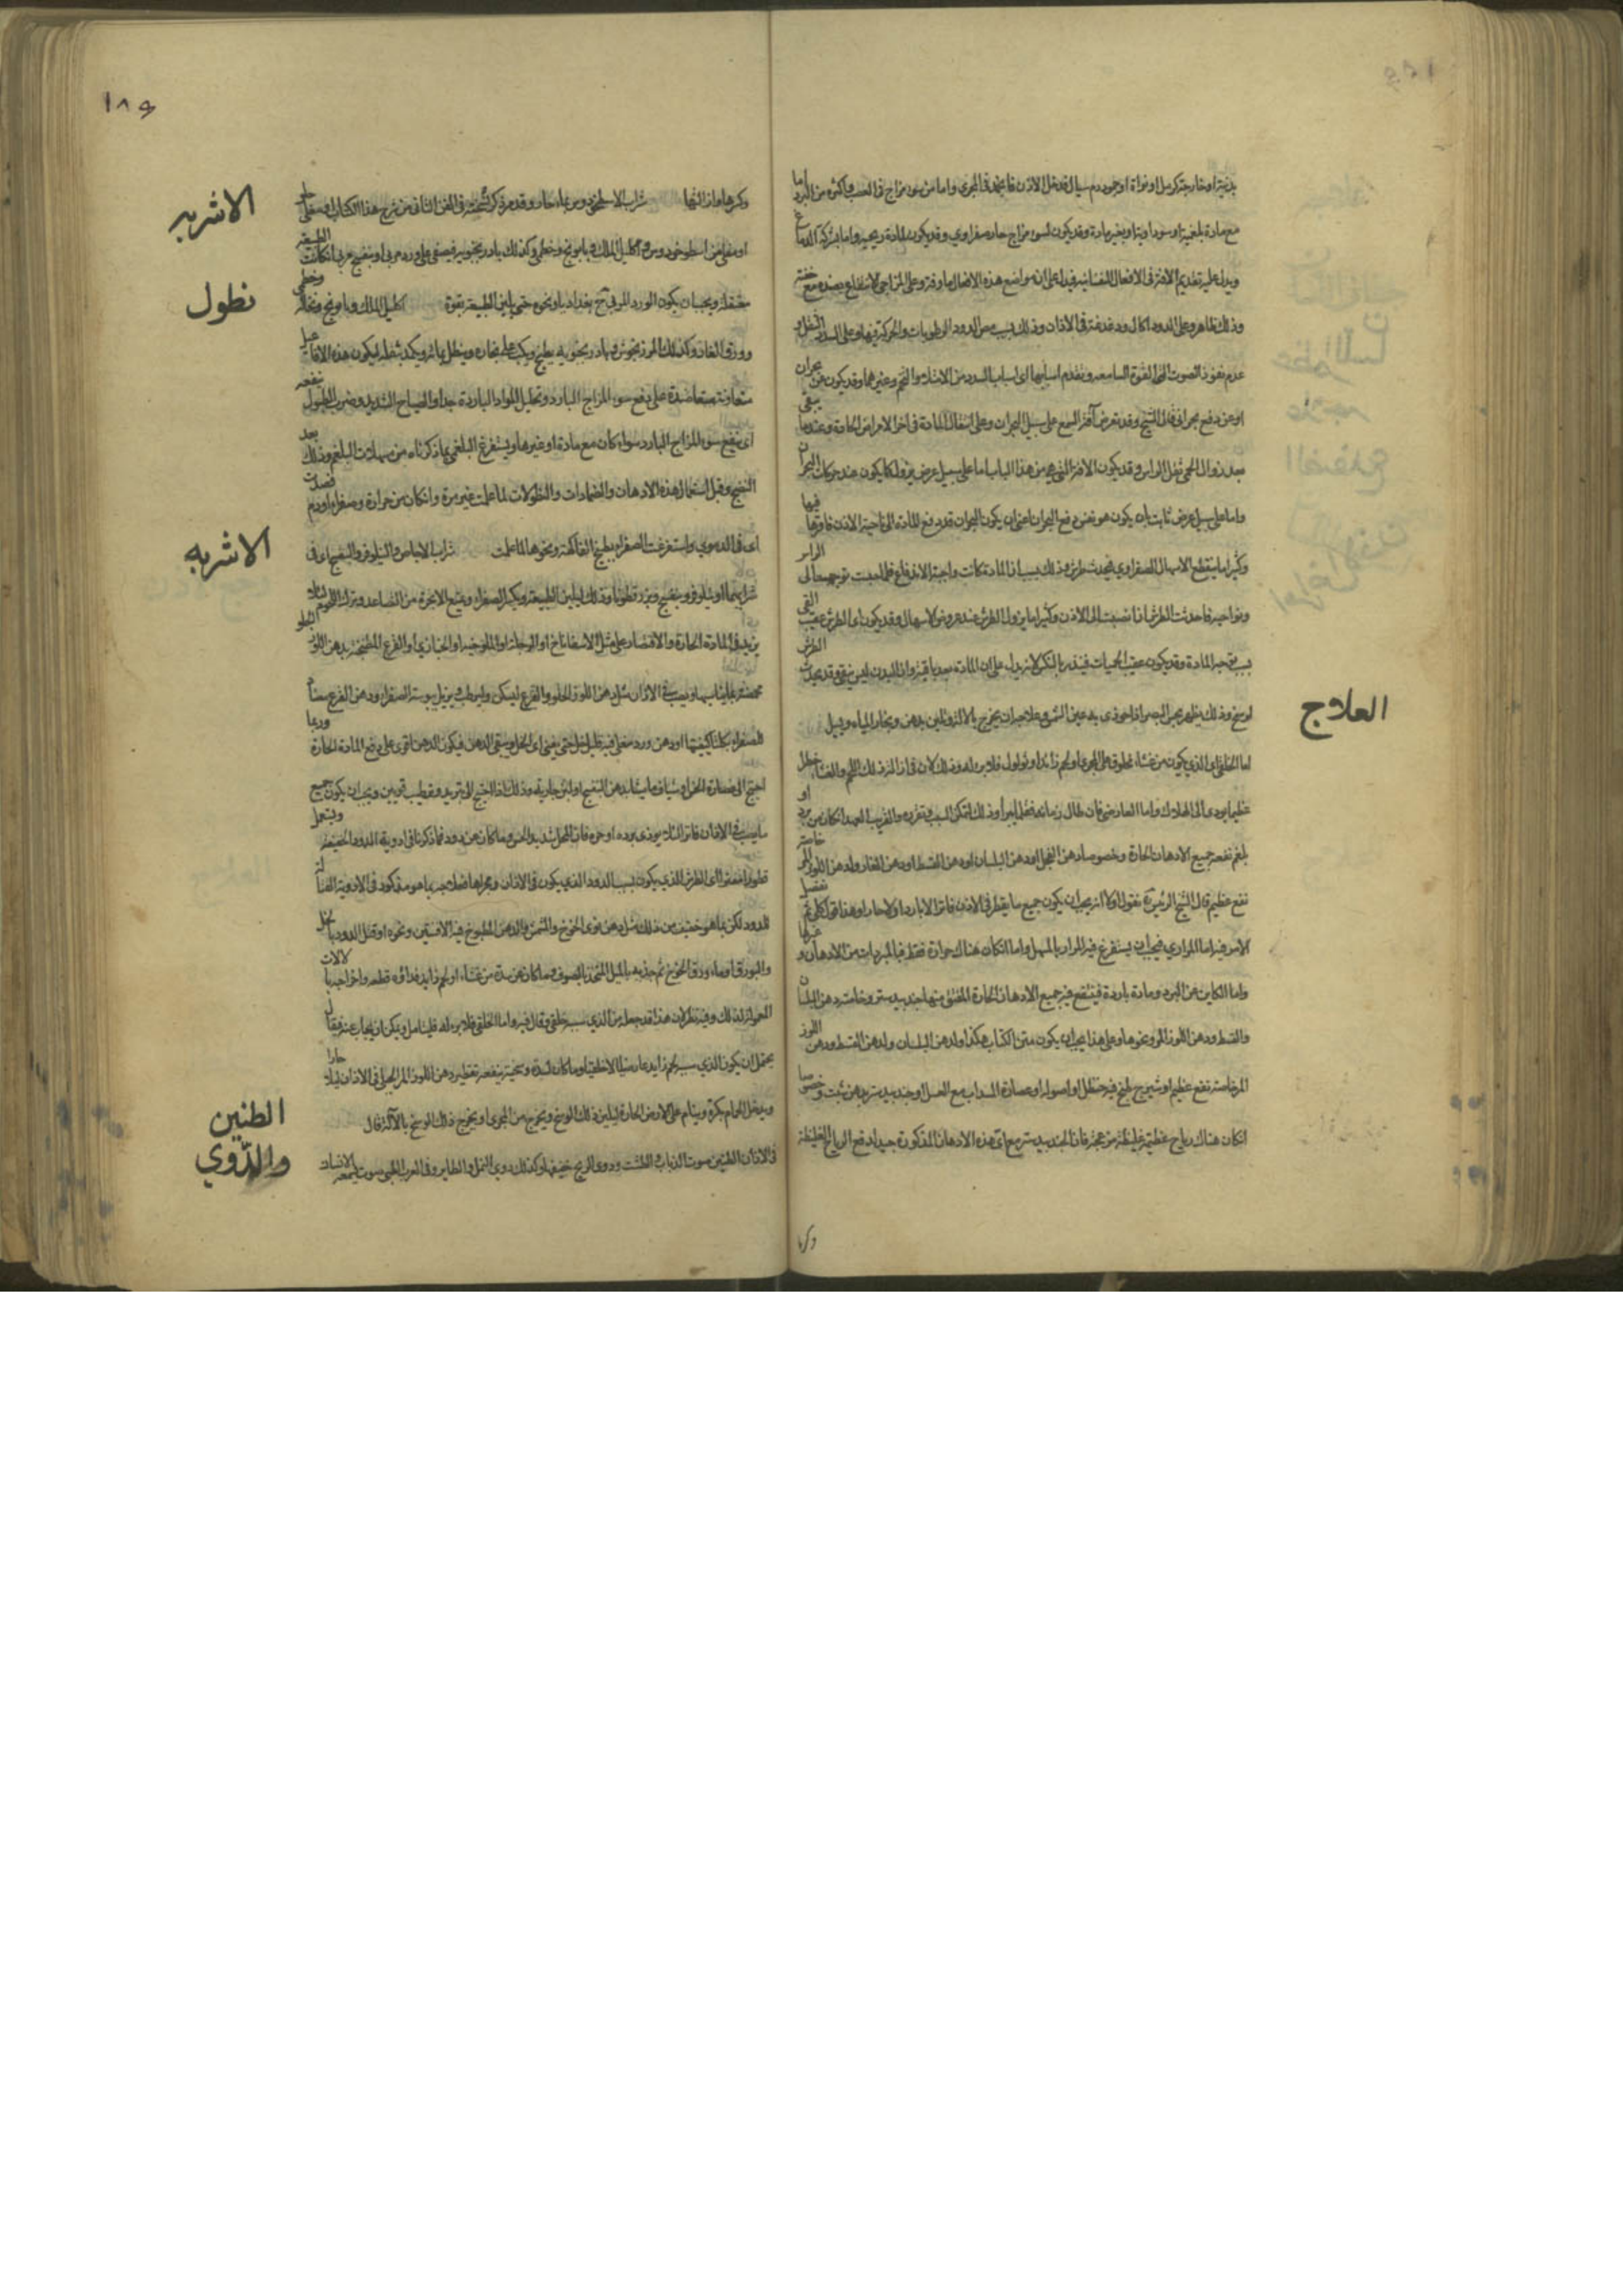 بدنية او خارجة كرمل او نواة او جمود دم سيال قد دخل الاذن فانجمد في المجرى واما من سوء مزاج في العصب واكثره من البرد اما
مع مادة بلغمية او سوداوية او بغير مادة وقد يكون لسوء مزاج حار صفراوي وقد يكون لمادة ريحية واما بشركة الدماغ
ويدل عليه تقديم الافة في الافعال النفسانية فيدل على ان مواضع هذه الافعال ماوفة وعلى المزاجي الانتفاع بضده مع خفة
وذلك ظاهر وعلى الدود اكال ودغدغة في الاذان وذلك بسبب مص الدود الرطوبات والحركة فيها وعلى السدد الثقل و
عدم نفوذ الصوت الى القوة السامعة وتقدم اسبابها اي اسباب السدد من الامتلاء والتخم وغيرهما وقد يكون عن بحران
او عن دفع بحراني قال الشيخ وقد تعرض آفة السمع على سبيل البحران وعلى انتقال المادة في اخر الامراض الحادة وعندما يبقى
بعد زوال الحمى ثقل الراس وقد يكون الافة التي هي من هذا الباب اما على سبيل عرض يزول كما يكون عند حركات البحران
واما على سبيل عرض ثابت بان يكون هو نفس دفع البحران اعني ان يكون البحران قد دفع المادة الى ناحية الاذن فاقرها فيها
وكثيرا ما ينقطع الاسهال الصفراوي فيحدث طرش وذلك بسبب ان المادة كانت واجبة الاندفاع فلما حبست توجهت الى الراس
ونواحيه فاحدثت الطرش اذا نصبت الى الاذن وكثيرا ما يزول الطرش عند عروض الاسهال وقد يكون اي الطرش عقيب القي
بسبب توجه المادة وقد يكون عقيب الحميات فينذر بالنكس لانه يدل على ان المادة بعد باقية وان البدن ليس بنقي وقد يحدث الطرش
لوسخ وذلك يظهر بحس البصر اذا حوذى به عين الشمس وعلاجه ان يخرج بالالة وتلين بدهن وبخار المياه وبيل
العلاج
اما الخلقي اي الذي يكون من غشاء مخلوق على المجرى او لحم زائد او ثولول فلا برء له وذلك لان
عظيم يودي الى الهلاك واما العارضي فان طال زمانه فقلما يبرأ وذلك لتمكن السبب وتقرره والقريب العهد ان كان من برد او
بلغم نفعه جميع الادهان الحارة وخصوصا دهن الفجل او دهن البلسان او دهن القسط او دهن الغار ولدهن اللوز المر خاصة
نفع عظيم قال الشيخ الرئيس نقول اولا انه يجب ان يكون جميع ما يقطر في الاذن فاترا لا باردا ولا حارا وهذا قول كلي ثم نفصل
الامر فيه اما المراري فيجب ان يستفرغ فيه المرار بالمسهل واما ان كان هناك حرارة فقط فبالمبردات من الادهان وغيرها
واما الكاين عن البرد ومادة باردة فينفع فيه جميع الادهان الحارة المفتق فيها جندبيدستر وخاصة دهن البلسان
والقسط ودهن اللوز المر ونحوها وعلى هذا يجب ان يكون متن الكتاب هكذا ولدهن البلسان ولدهن القسط ودهن اللوز
المر خاصة نفع عظيم او شيرج طبخ فيه حنظل او اصوله او عصارة السداب مع العسل او جندبيدستر بدهن شبت وخصوصا
ان كان هناك رياح غليظة فان الجندبيدستر مع اي هذه الادهان المذكورة جيد لدفع الرياح الغليظة
وكرها
١٨٩
الاشربه
وكرها وازالتها شراب الاسطوخودوس بماء حار وقد مر ذكر نسخته في الفن الثاني من شرح هذا الكتاب او مغلي حار
او مغلي من اسطوخودوس واكليل الملك وبابونج وخطمي وكذلك بادرنجبويه فيصفى على ورد مربى او بنفسج مربى ان كانت الطبيعة
نطول
معتقلة ويجب ان يكون الورد المربى ببغداديا ونحوه حتى يلين الطبيعة بقوة اكليل الملك وبابونج ونخالة وخطمي
وورق الغار وكذلك المرزنجوش وبادرنجبويه يطبخ ويكب على بخاره وينطل بمائه ويكمد بثفله ليكون هذه الافات
متعاونة متعاضدة على دفع سوء المزاج البارد وتحليل المواد الباردة جدا والصياح الشديد وضرب الطبول ينفعه
اي ينفع سوء المزاج البارد سواء كان مع مادة او غيرها ويستفرغ البلغمي بما ذكرناه من مسهلات البلغم وذلك بعد
النضج وقبل استعمال هذه الادهان والضمادات والنطولات لما علمت غير مرة وان كان من حرارة وصفراء او دم فصدت
الاشربه
اي في الدموي واستفرغت الصفراء بطبيخ الفاكهة ونحوها لما علمت شراب الاجاص والنيلوفر والبنفسج اي في
شرابهما او نيلوفر وبنفسج وبزرقطونا وذلك ليلين الطبيعة ويكسر الصفراء ويمنع الابخرة من التصاعد وترك اللحوم لئلا
يزيد في المادة الحارة والاقتصار على مثل الاسفاناخ او الرجلة او الملوخية او الخبازي او القرع المطبخة بدهن اللوز الحلو
محمضة بما يناسبها ويصب في الاذان مثل دهن اللوز الحلو والقرع ليسكن وليرطب ويزيل يبوسة الصفراء ودهن القرع مضاد
للصفراء بكلتا كيفيتها او دهن ورد مغلي فيه قليل خل حتى يفنى اي الخل ويبقى الدهن فيكون الدهن اقوى على دفع المادة الحارة وربما
احتيج الى عصارة الخس او شياف ماميثا بدهن البنفسج او لبن جارية وذلك اذا احتيج الى تبريد وترطيب قويين ويجب ان يكون جميع
ما يصب في الاذان فاترا لئلا يوذي برده او حره فان المحل شديد الحس وما كان عن دود فما ذكرنا في ادوية الدود الخفيفة ويستعمل
قطورا
للدود لكن بما هو خفيف من ذلك مثل دهن نوى الخوخ والمشمش والدهن المطبوخ فيه الافسنتين ونحوه او قتل الدود بالخل
والبورق او ماء ورق الخوخ ثم جذبه بالميل المتخذ بالصوف وما كان عن سدة من غشاء او لحم زايد فدواؤه قطعه واخراجه بالالات
المعمولة لذلك وفيه نظر لان هذا قد جعل من الذي سببه خلقي وقال فيه واما الخلقي فلا برء له فليتامل ويمكن ان يجاب عنه فيقال
يحتمل ان يكون الذي سببه لحم زايد عارضيا لا خلقيا وما كان لسدة وسخية ينفعه تقطير دهن اللوز المر الجبلي في الاذان ليلا حارا
ويدخل الحمام بكرة وينام على الارض الحارة ليلين ذلك الوسخ ويخرج من المجرى او يخرج ذلك الوسخ بالآلة قال
الطنين والدّوي
في الاذان الطنين صوت الذباب والطشت ودوي الريح خفيفها وكذلك دوي النحل والطاير وفي العرف الطبي صوت يسمعه الانسان